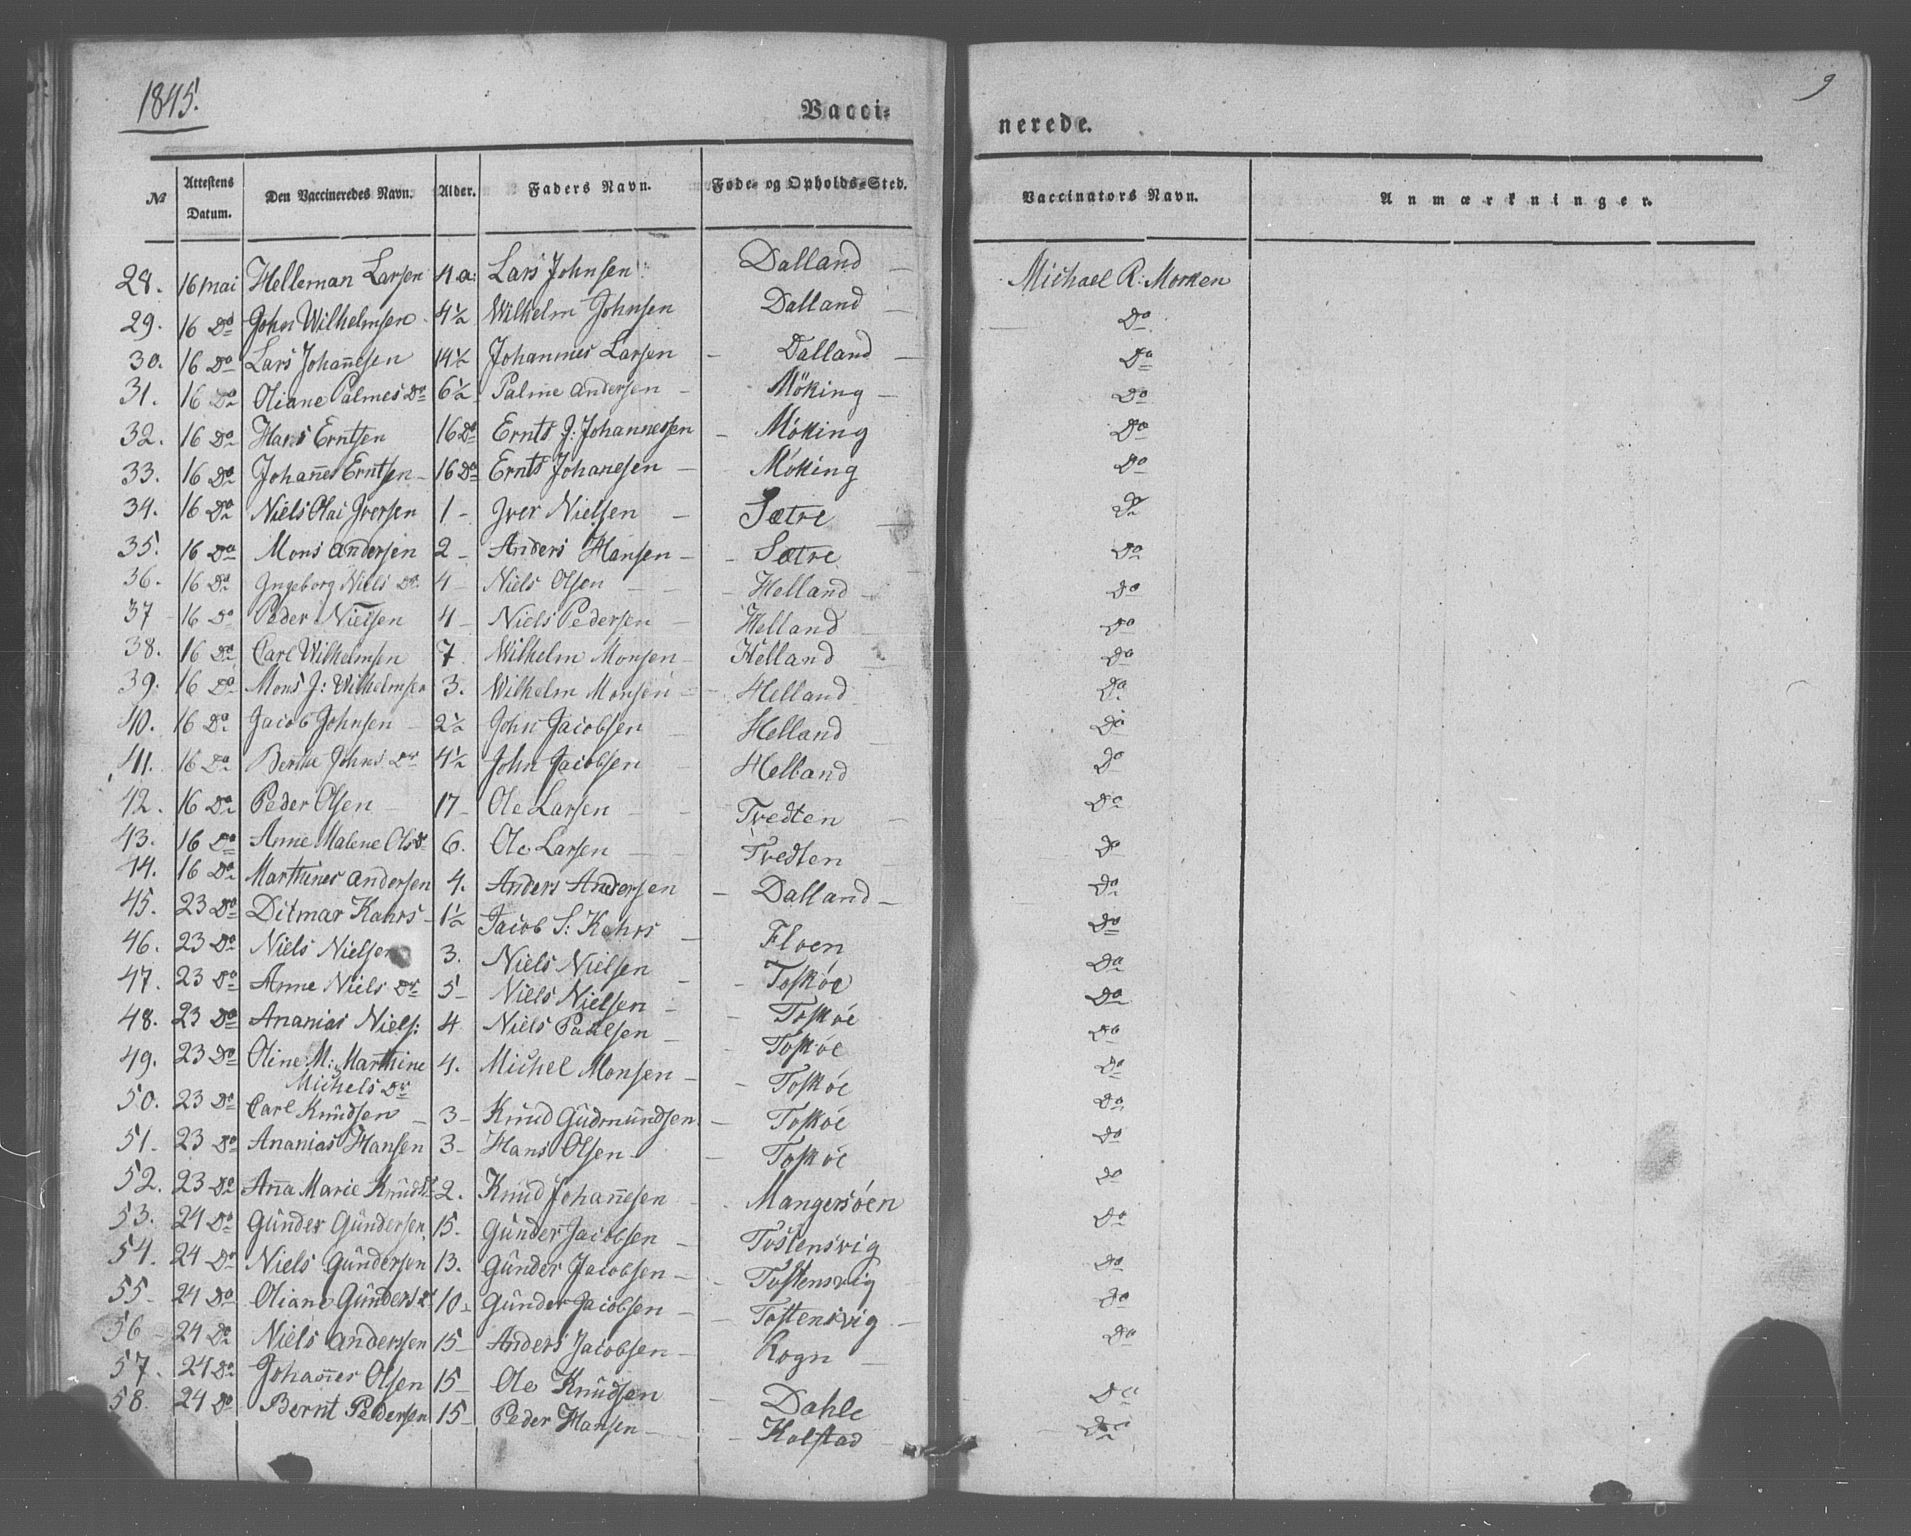 1845.
9
Vacci- nerede.
№ Attestens Datum. Den Vaccineredes Navn. Alder. Faders Navn. Føde- og Opholds-Sted. Vaccinators Navn. Anmærkninger.
28. 16 mai Helleman Larsen 4 a: Lars Johnsen Dalland Michael R: Morken
29. 16 Do John Wilhelmsen 4½ Wilhelm Johnsen Dalland Do
30. 16 Do Lars Johañesen 14½ Johannes Larsen Dalland Do
31. 16 Do Oliane Palmes Dr 6½ Palme Andersen Möking Do
32. 16 Do Hans Erntsen 16 Do Ernts J: Johannessen Möking Do
33. 16 Do Johañes Erntsen 16 Do Ernts Johanesen Möking Do
34. 16 Do Niels Olai Iversen 1 Iver Nielsen Sætre Do
35. 16 Do Mons Andersen 2 Anders Hansen Sætre Do
36. 16 Do Ingeborg Niels Dr 4 Niels Olsen Helland Do
37 16 Do Peder Nielsen 4 Niels Pedersen Helland Do
38. 16 Do Carl Wilhelmsen 7 Wilhelm Monsen Helland Do
39. 16 Do Mons J: Wilhelmsen 3. Wilhelm Monsen Helland Do
40. 16 Do Jacob Johnsen 2½ John Jacobsen Helland Do
41. 16 Do Bertha Johns Dr 4½ John Jacobsen Helland Do
42. 16 Do Peder Olsen 17 Ole Larsen Tvedten Do
43. 16 Do Anne Malene Ols Dr 6. Ole Larsen Tvedten Do
44. 16 Do Marthines Andersen 4. Anders Andersen Dalland Do
45. 23 Do Ditmar Kahrs 1½ Jacob S: Kahrs Floen Do
46. 23 Do Niels Nielsen 3. Niels Nielsen Toskóe Do
47. 23 Do Anne Niels Dr 5 Niels Nielsen Toskóe Do
48. 23 Do Ananias Niels: 4 Niels Paulsen Toskóe Do
49. 23 Do Oline M: Marthine 4. Michel Monsen Toskóe Do
Michels Dr
50. 23 Do Carl Knudsen 3 Knud Gudmundsen Toskóe Do
51. 23 Do Ananias Hansen 3 Hans Olsen Toskóe Do
52. 23 Do Añа Marie Knuds Dr 2. Knud Johañesen Mangersóen Do
53. 24 Do Gunder Gundersen 15. Gunder Jacobsen Tostensvig Do
54. 24 Do Niels Gundersen 13. Gunder Jacobsen Tostensvig Do
55 24 Do Oliane Gunders Dr 10 Gunder Jacobsen Tostensvig Do
56 24 Do Niels Andersen 15 Anders Jacobsen Rogn Do
57. 24 Do Johañes Olsen 15 Ole Knudsen Dahle Do
58. 24 Do Bernt Pedersen 15 Peder Hansen Kalstad Do